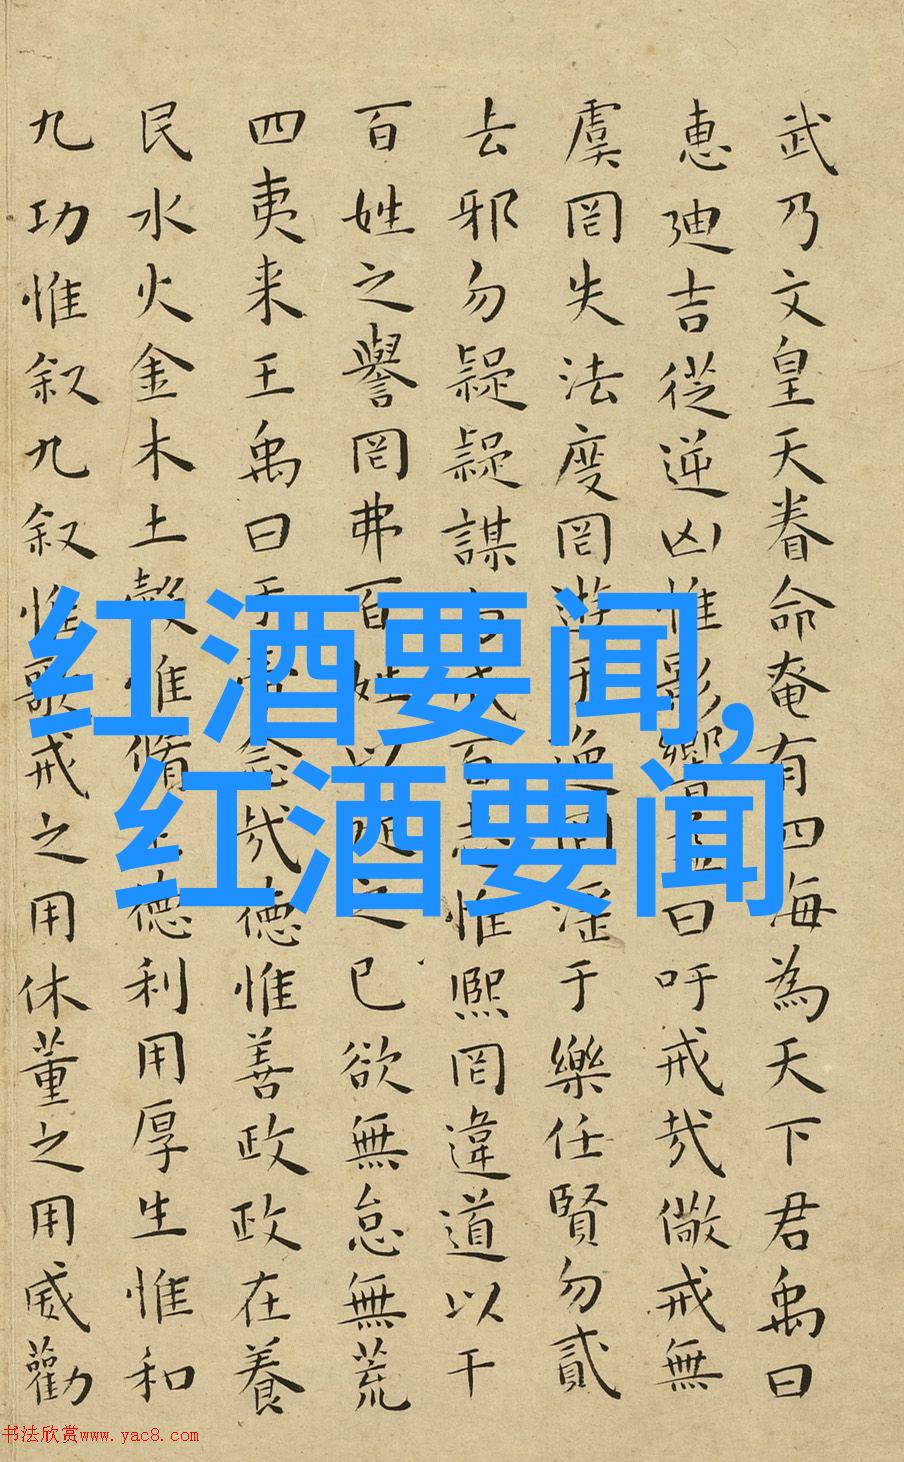 武乃文皇天眷命奄有四海為天下君禹曰
惠迪吉從逆凶惟影響曰吁戒哉儆戒無
虞罔失法度罔遊于逸罔淫于樂任賢勿貳
去邪勿疑疑謀勿成百志惟熙罔違道以干
百姓之譽罔弗百姓以從之已欲無怠無荒
四夷来王禹曰於帝念哉德惟善政政在養
民水火金木土穀惟脩正德利用厚生惟和
九功惟叙九叙惟歌戒之用休董之用威勸
红酒要闻,
红酒要闻
书法欣赏www.yac8.com